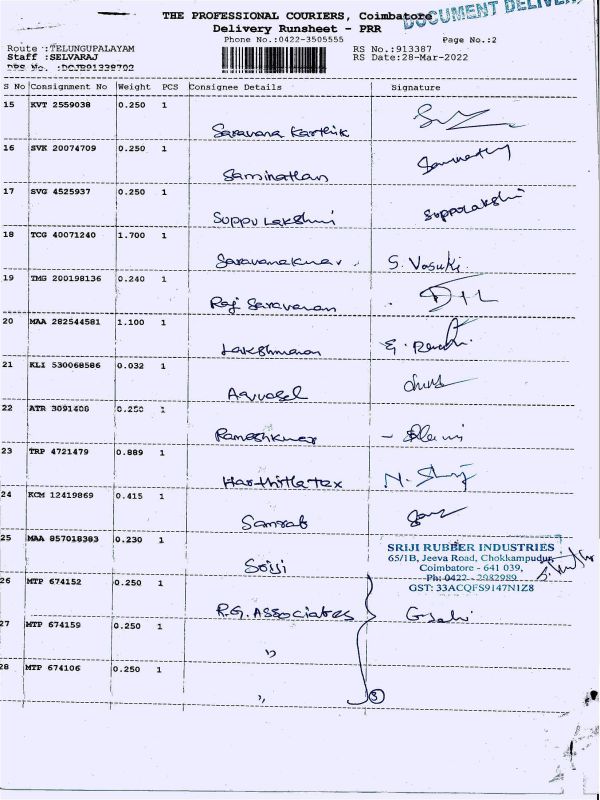 THE PROFESSIONAL COURIERS, Coimbatore
DOCUMENT
Delivery Runsheet - PRR
Phone No.:0422-3505555 Page No.:2
Route :TELUNGUPALAYAM RS No.:913387
Staff :SELVARAJ RS Date:28-Mar-2022
DRS No. :DCJB91338702
S No Consignment No Weight PCS Consignee Details Signature
15 KVT 2559038 0.250 1
Saravana Karthik
16 SVK 20074709 0.250 1
Saminathan
17 SVG 4525937 0.250 1
Suppu Lakshmi Suppulakshi
18 TCG 40071240 1.700 1
Saravanakumar S. Vasuki
19 TMG 200198136 0.240 1
Raj Saravanan
20 MAA 282544581 1.100 1
Lakshmanan
21 KLI 530068586 0.032 1
22 ATR 3091408 0.250 1
Rameshkumar
23 TRP 4721479 0.889 1
Harthitha Tex
24 KCM 12419869 0.415 1
25 MAA 857018383 0.230 1
Sriji
SRIJI RUBBER INDUSTRIES
65/1B, Jeeva Road, Chokkampudur,
Coimbatore - 641 039,
Ph: 0422 - 2982989
GST: 33ACQFS9147N1Z8
26 MTP 674152 0.250 1
R.G. Associates
27 MTP 674159 0.250 1
"
28 MTP 674106 0.250 1
" 3